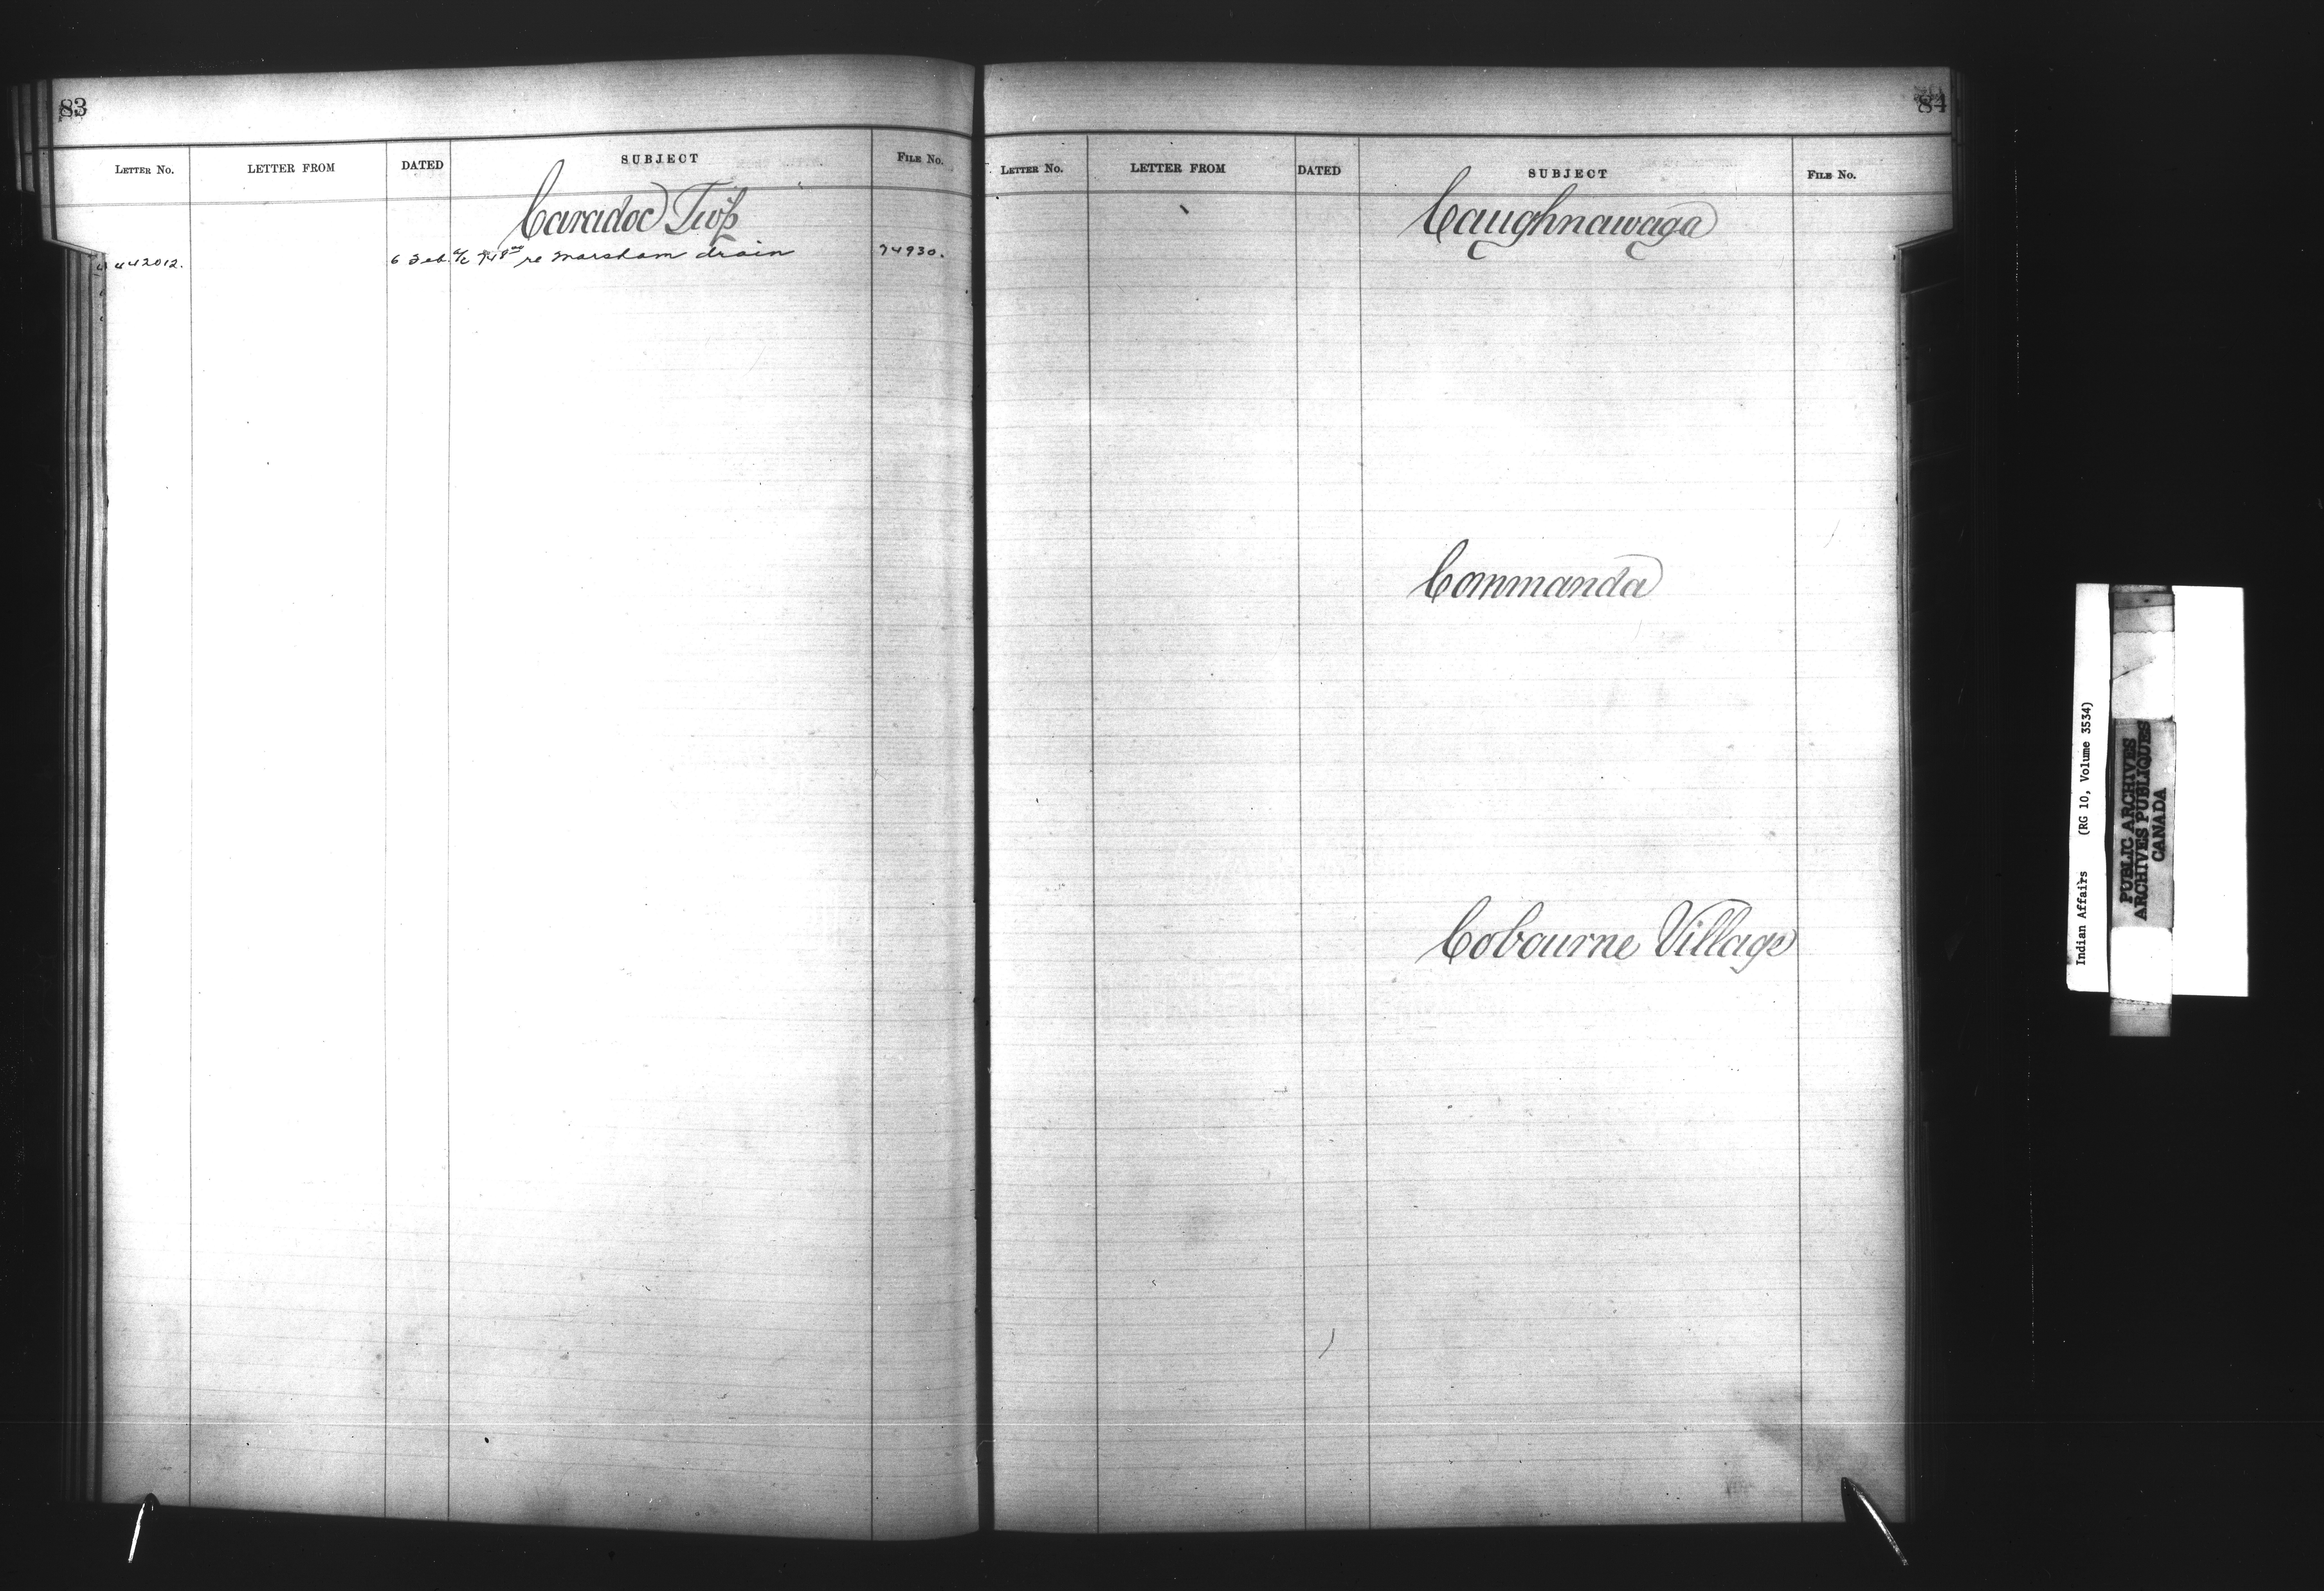 83
LETTER NO. LETTER FROM DATED SUBJECT FILE NO.
Caradoc Twp
442012. 6 Feb. re Marsham drain 74930.
84
LETTER NO. LETTER FROM DATED SUBJECT FILE NO.
Caughnawaga
Commanda
Cobourne Village
Indian Affairs (RG 10, Volume 3534)
PUBLIC ARCHIVES
ARCHIVES PUBLIQUES
CANADA